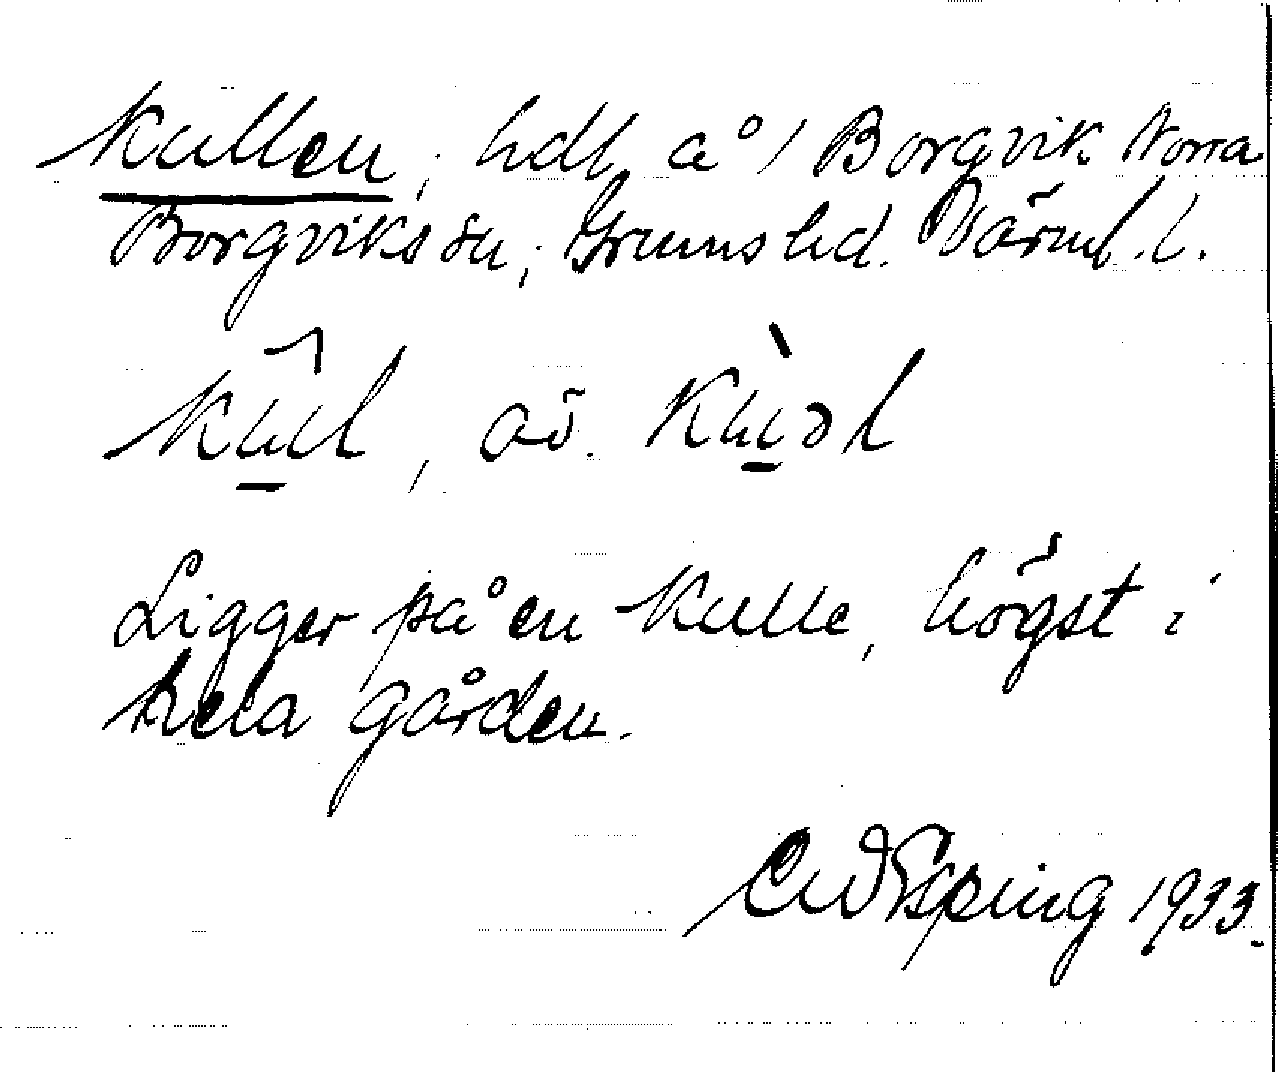 Kullen, hdl å 1/ Borgvik Norra
Borgviks sn, Grums hd. Värml. l.
kul, av. kuəl
Ligger på en kulle, högst i
hela gården.
1933.